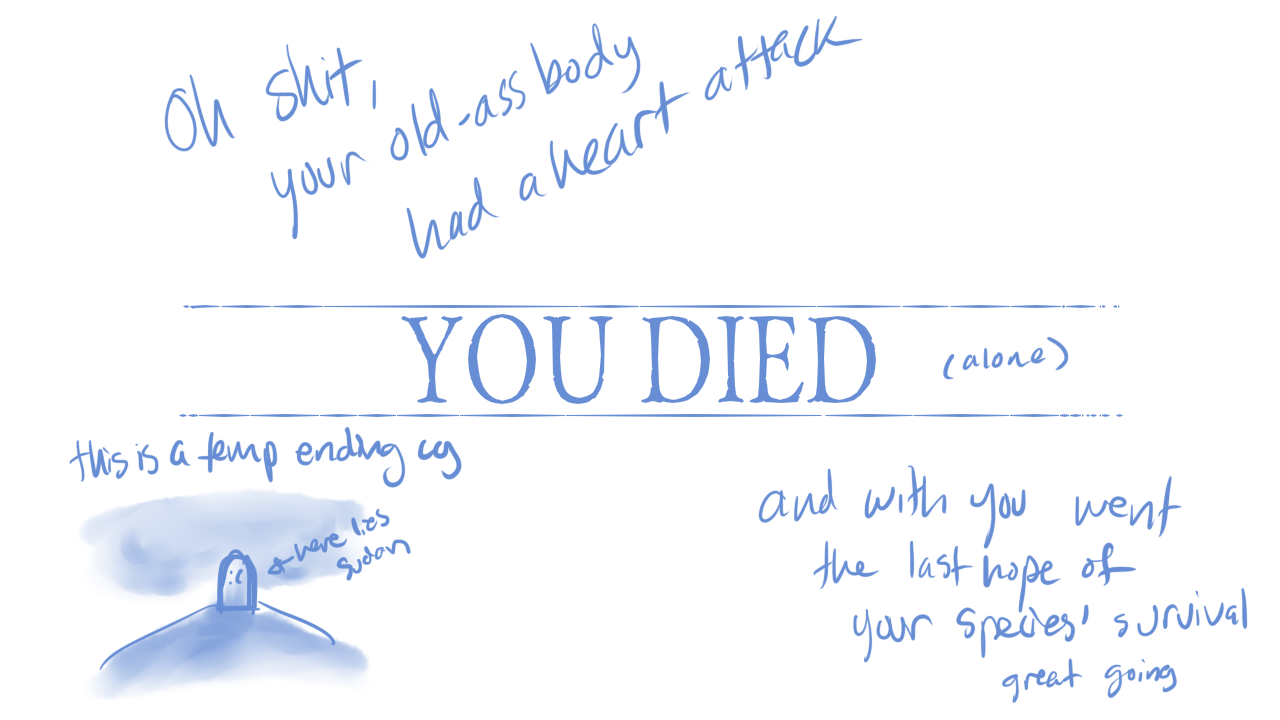 Oh shit,
your old-ass body
had a heart attack
YOU DIED
(alone)
this is a temp ending cg
here lies
sudan
:c
and with you went
the last hope of
your species' survival
great going